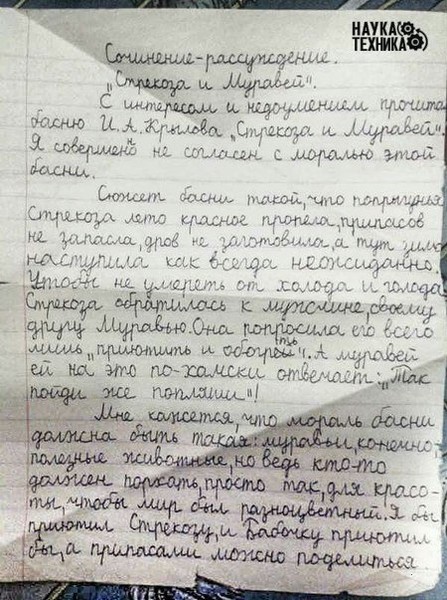 НАУКА
ТЕХНИКА
Сочинение-рассуждение.
„Стрекоза и Муравей".
С интересом и недоумением прочитал
басню И.А.Крылова „Стрекоза и Муравей".
Я совершенно не согласен с моралью этой
басни.
Сюжет басни такой, что попрыгунья
Стрекоза лето красное пропела, припасов
не запасла, дров не заготовила, а тут зима
наступила как всегда неожиданно.
Чтобы не умереть от холода и голода
Стрекоза обратилась к мужчине, своему
другу Муравью. Она попросила его всего
лишь „приютить и обогреть". А муравей
ей на это по-хамски отвечает: „Так
пойди же попляши"!
Мне кажется, что мораль басни
должна быть такая: муравьи, конечно,
полезные животные, но ведь кто-то
должен порхать, просто так, для красо-
ты, чтобы мир был разноцветный. Я бы
приютил Стрекозу, и Бабочку приютил
бы, а припасами можно поделиться